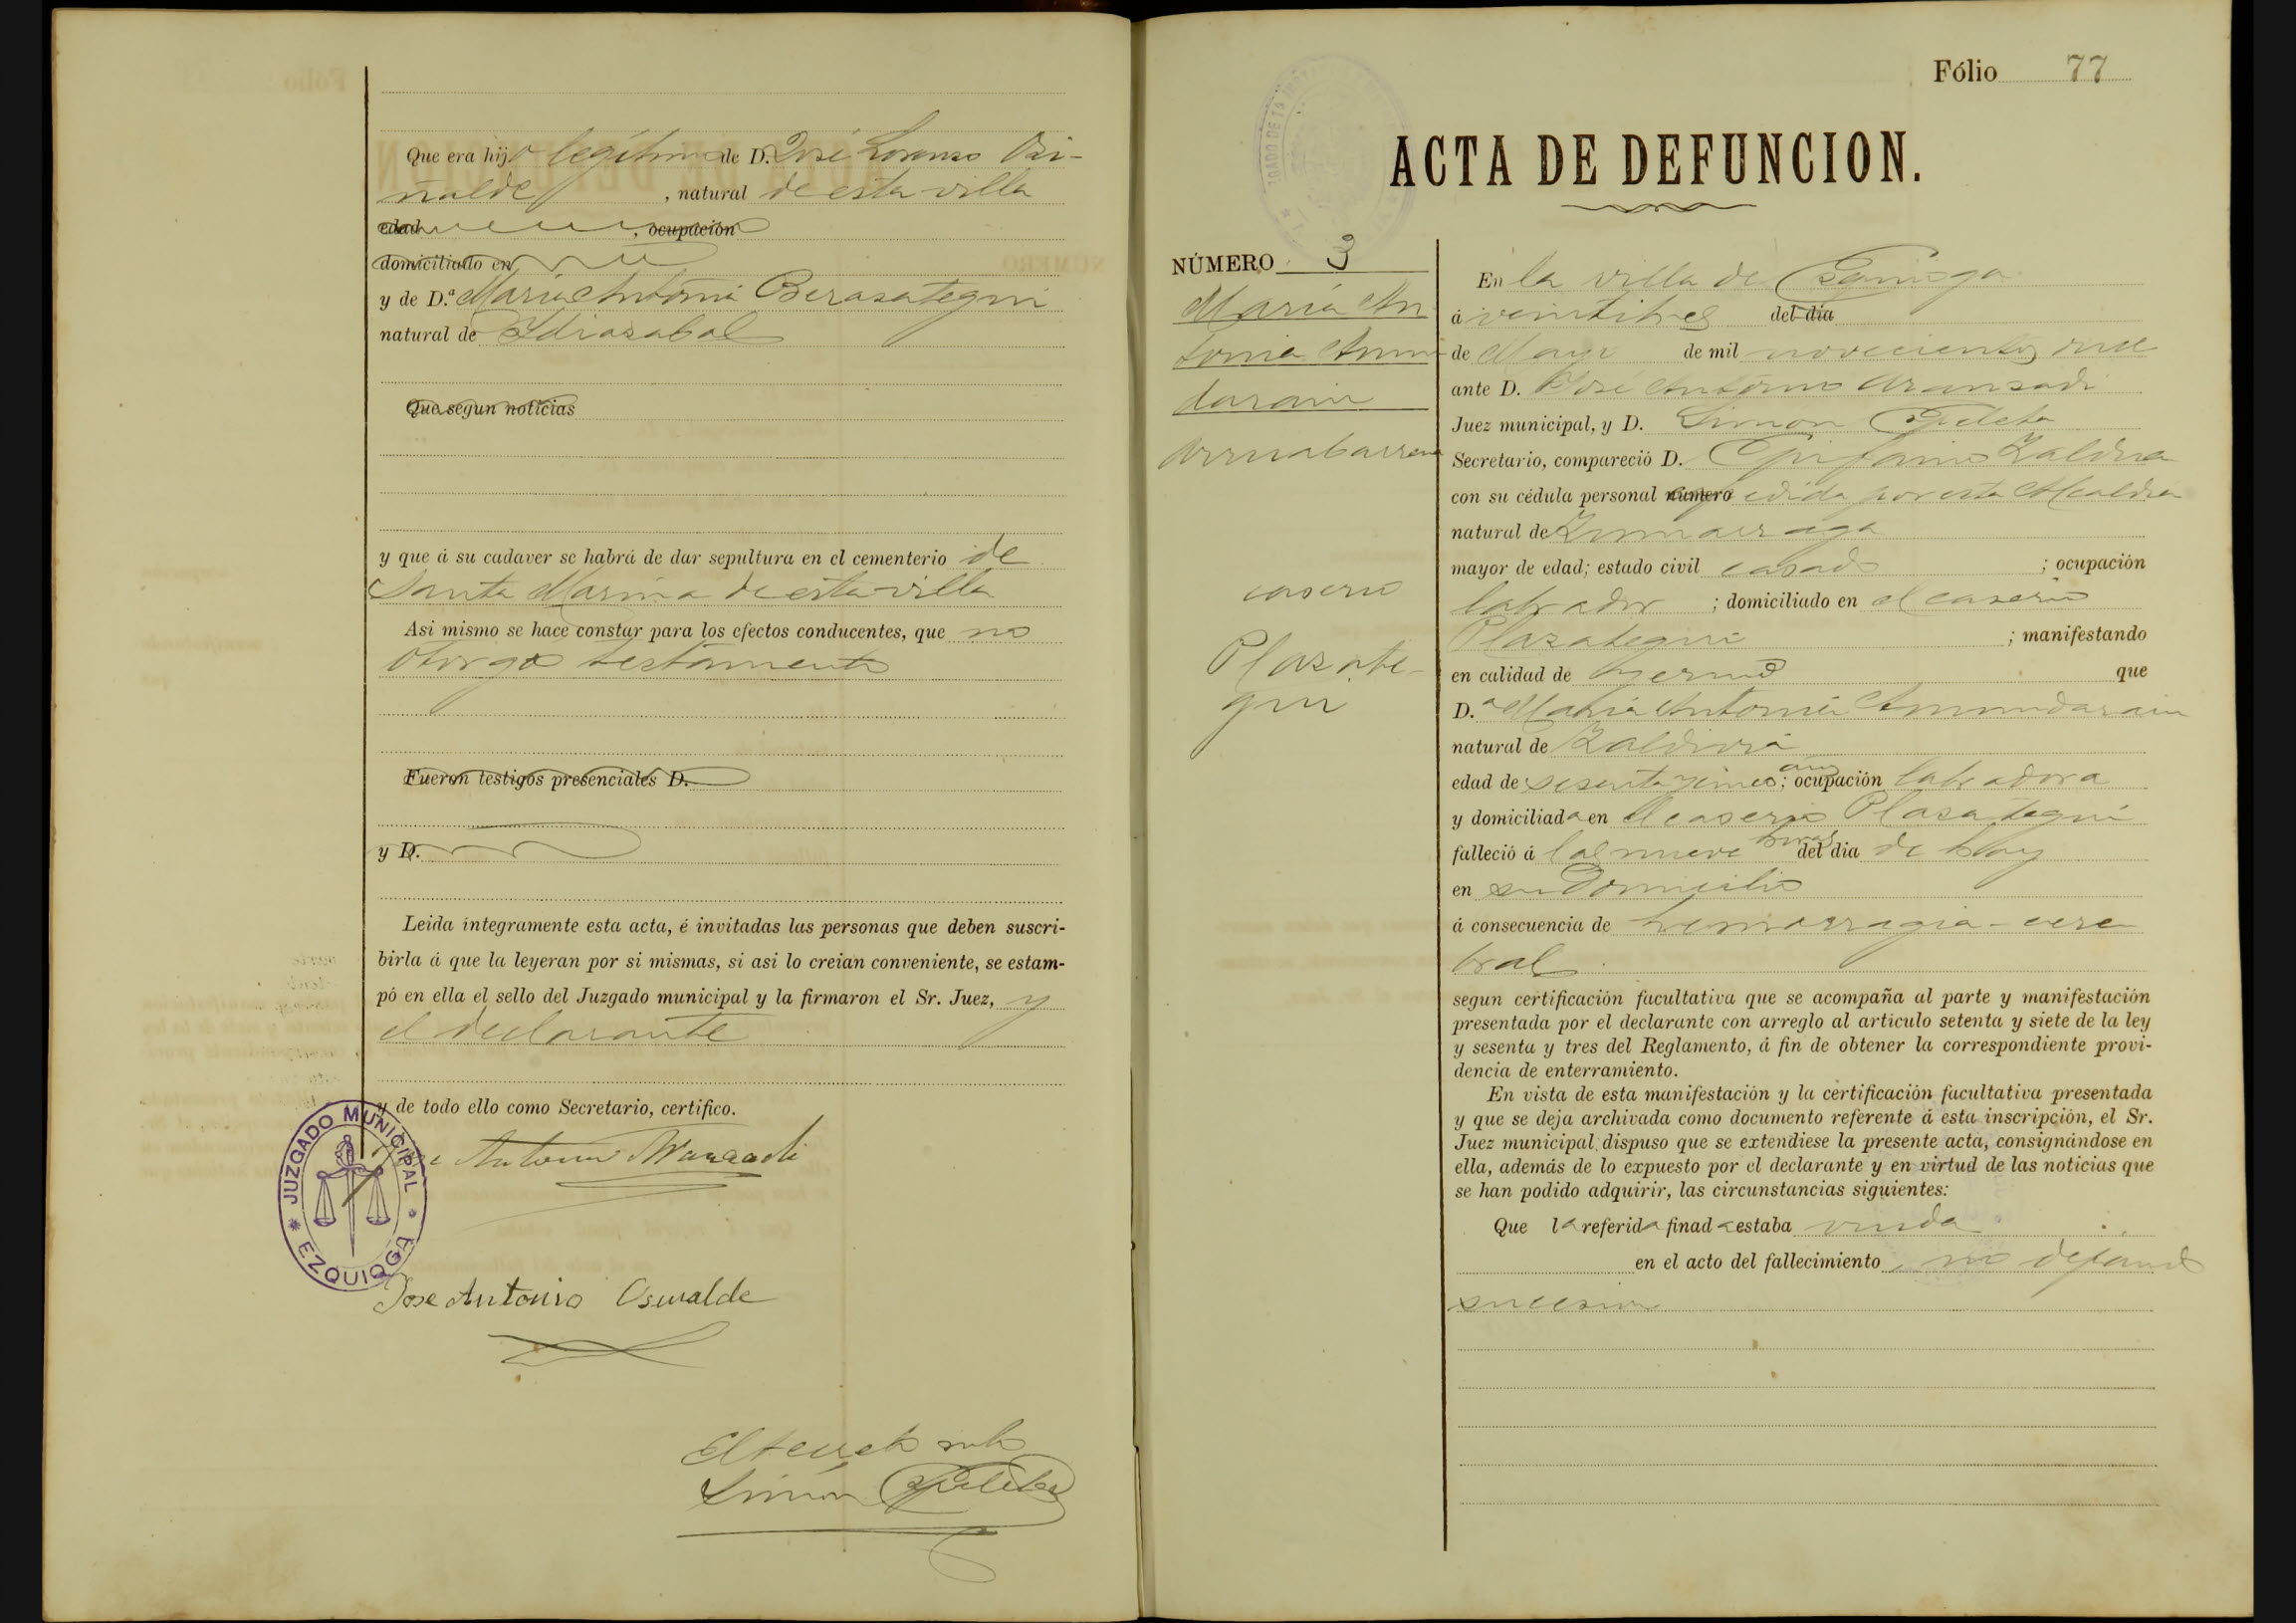 Que era hijo legítimo de D. José Lorenzo Osi-
ñalde, natural de esta villa
edad, ocupación
domiciliado en
y de D.ª María Antonia Berasategui
natural de Idiazabal
Que segun noticias
y que á su cadaver se habrá de dar sepultura en el cementerio de
Santa Marina de esta villa
Asi mismo se hace constar para los efectos conducentes, que no
otorgó testamento
Fueron testigos presenciales D.
y D.
Leida íntegramente esta acta, é invitadas las personas que deben suscri-
birla á que la leyeran por si mismas, si asi lo creian conveniente, se estam-
pó en ella el sello del Juzgado municipal y la firmaron el Sr. Juez, y
el declarante
y de todo ello como Secretario, certifico.
JUZGADO MUNICIPAL
EZQUIOGA
José Antonio Aranzadi
Jose Antonio Osinalde
Simón
Fólio 77
ACTA DE DEFUNCION.
NÚMERO 3
María An
tonia Amun
darain
Arruabarrena
caserio
Plazate-
gui
En la villa de Ezquioga
á veintitres del dia
de Mayo de mil novecientos once
ante D. José Antonio Aranzadi
Juez municipal, y D. Simón
Secretario, compareció D. Epifanio Zaldua
con su cédula personal número expedida por esta Alcaldia
natural de Zumarraga
mayor de edad; estado civil casado; ocupación
labrador; domiciliado en el caserio
Plazategui; manifestando
en calidad de yerno que
D.ª María Antonia Amundarain
natural de Zaldivia
edad de sesenta y cinco años; ocupación labradora
y domiciliada en el caserio Plazategui
falleció á las nueve horas del dia de hoy
en su domicilio
á consecuencia de hemorragia cere
bral
segun certificación facultativa que se acompaña al parte y manifestación
presentada por el declarante con arreglo al articulo setenta y siete de la ley
y sesenta y tres del Reglamento, á fin de obtener la correspondiente provi-
dencia de enterramiento.
En vista de esta manifestación y la certificación facultativa presentada
y que se deja archivada como documento referente á esta inscripción, el Sr.
Juez municipal dispuso que se extendiese la presente acta, consignándose en
ella, además de lo expuesto por el declarante y en virtud de las noticias que
se han podido adquirir, las circunstancias siguientes:
Que la referida finada estaba viuda
en el acto del fallecimiento, no dejando
sucesion